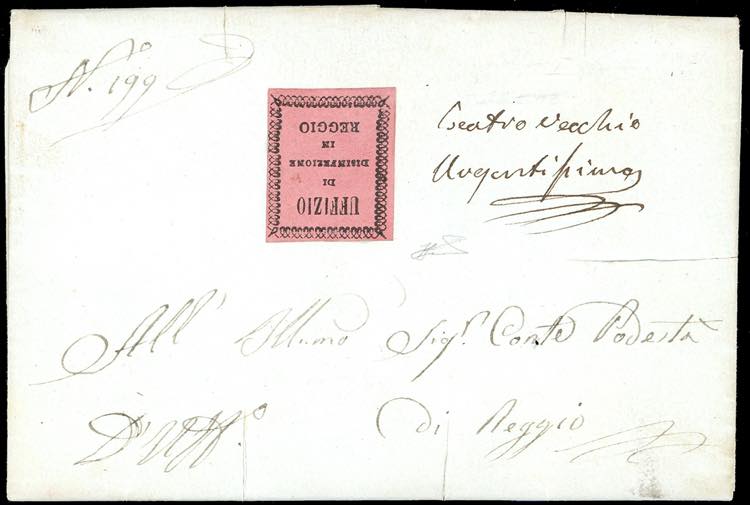 N.º 199
UFFIZIO
DI
DISINFEZIONE
IN
REGGIO
Teatro Vecchio
Urgentissima
All' Illumo Sigr. Conte Podestà
D'Uff.º di Reggio